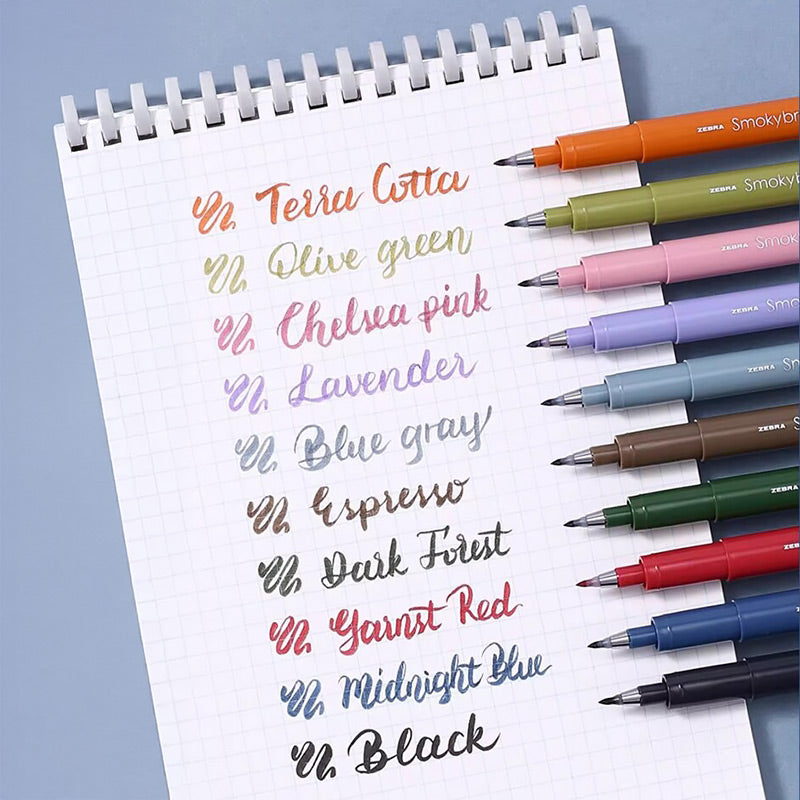 Terra Cotta
Olive green
Chelsea pink
Lavender
Blue gray
Espresso
Dark Forest
Garnst Red
Midnight Blue
Black
ZEBRA Smokybr
ZEBRA Smokyb
ZEBRA Smok
ZEBRA Smo
ZEBRA Sm
ZEBRA S
ZEBRA
ZEB